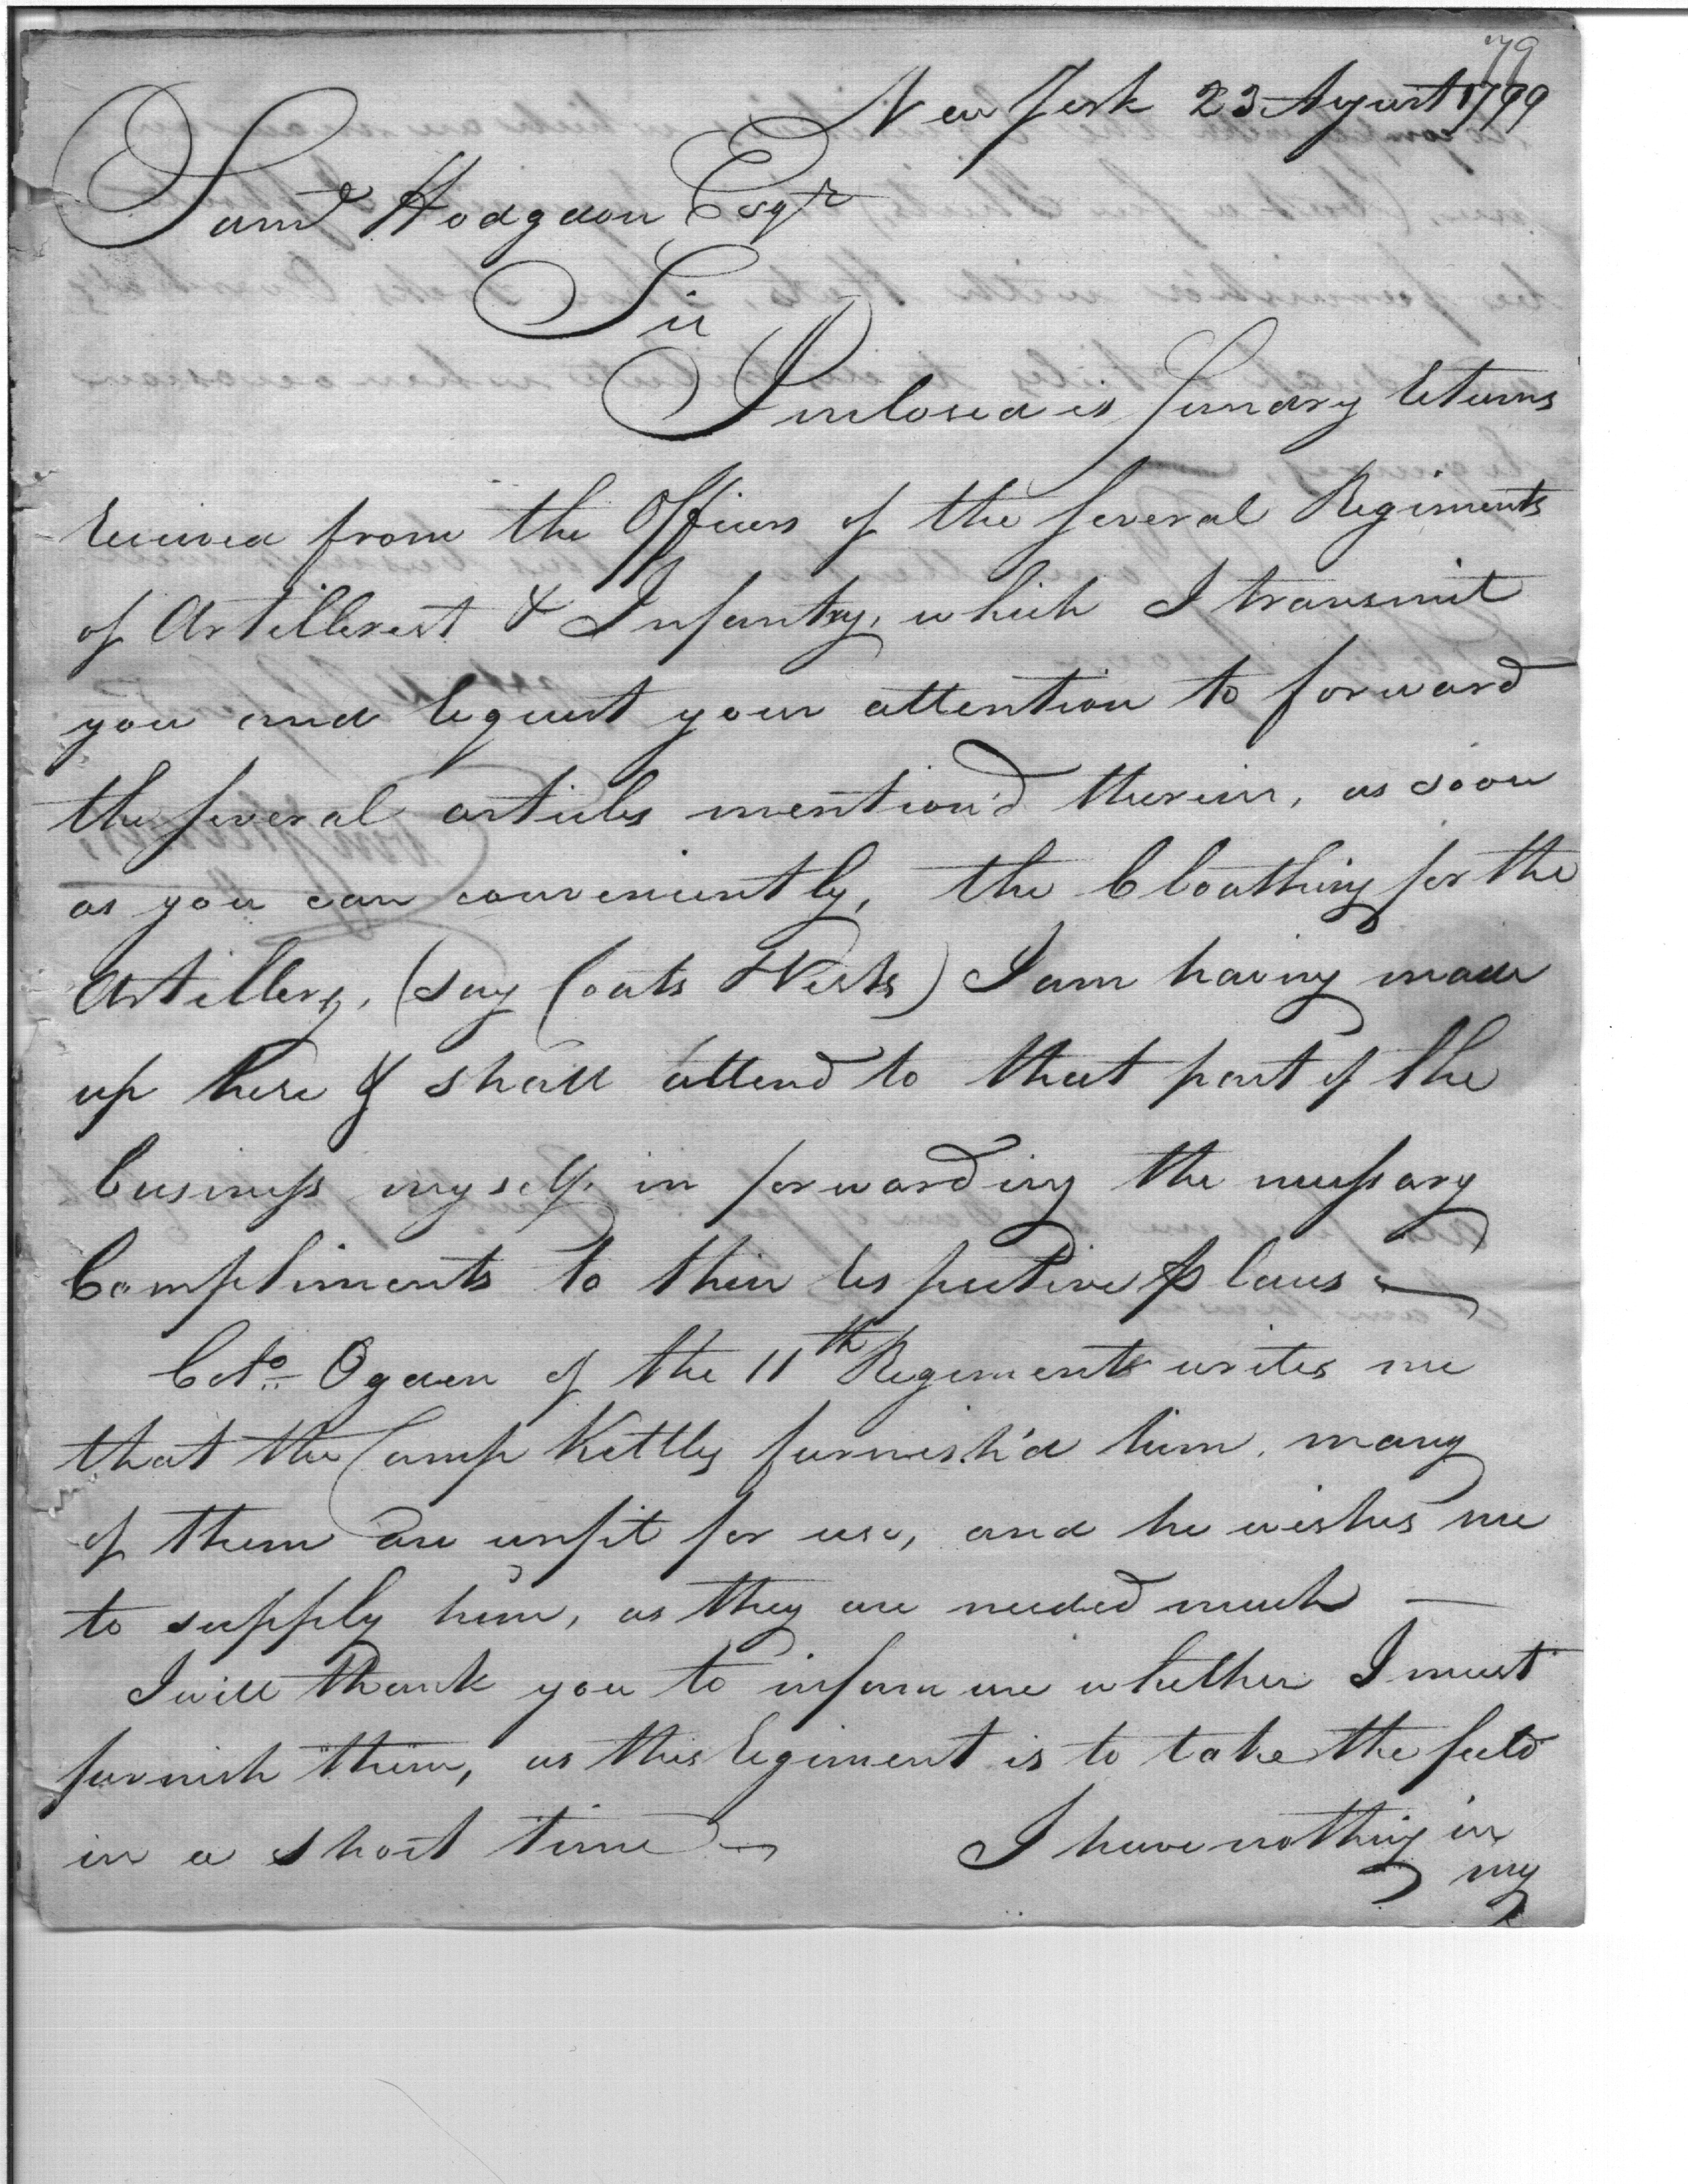 79
New York 23 August 1799
Saml Hodgdon Esqr
Sir
Inclosed is Sundry returns
received from the Officers of the several Regiments
of Artillerist & Infantry, which I transmit
you and request your attention to forward
the several articles mention'd therein, as soon
as you can conveniently, the Cloathing for the
Artillery, (say Coats & Vests) I am having made
up here & shall attend to that part of the
business myself in forwarding the necessary
Compliments to their respective places
Colo. Ogden of the 11th Regiment writes me
that the Camp Kettles furnish'd him, many
of them are unfit for use, and he wishes me
to supply him, as they are needed much —
I will thank you to inform me whether I must
furnish them, as this regiment is to take the field
in a short time — I have nothing in
my